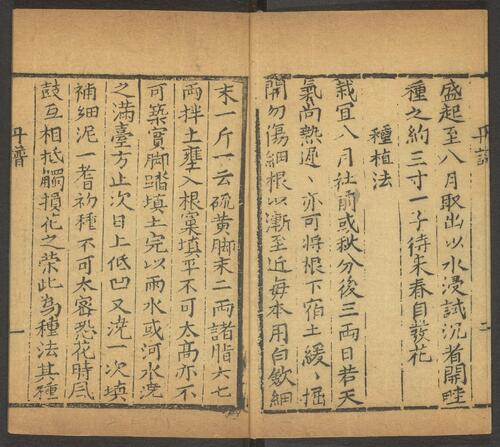 盛起至八月取出以水浸試沉者開畦
種之約三寸一子待来春自發花
種植法
栽宜八月社前或秋分後三兩日若天
氣尚熱遲、亦可將根下宿土緩、掘
開勿傷細根以漸至近每本用白斂細
末一斤一云硫黄脚末二兩諸脂六七
兩拌土壅入根窠填平不可太高亦不
可築實脚踏填土完以雨水或河水澆
之滿臺方止次日上低凹又澆一次填
補細泥一耆初種不可太密恐花時風
鼓互相抵觸損花之榮此為種法其種
丹譜
一